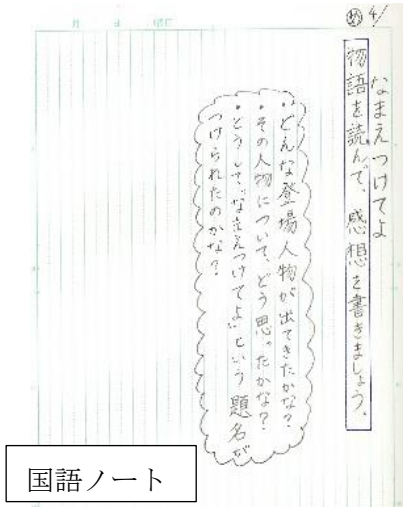 4/
なまえつけてよ
め
物語を読んで、感想を書きましょう。
・どんな登場人物が出てきたかな?
・その人物について、どう思ったかな?
・どうして、“なまえつけてよ”という題名が
つけられたのかな?
月 日 曜日
国語ノート